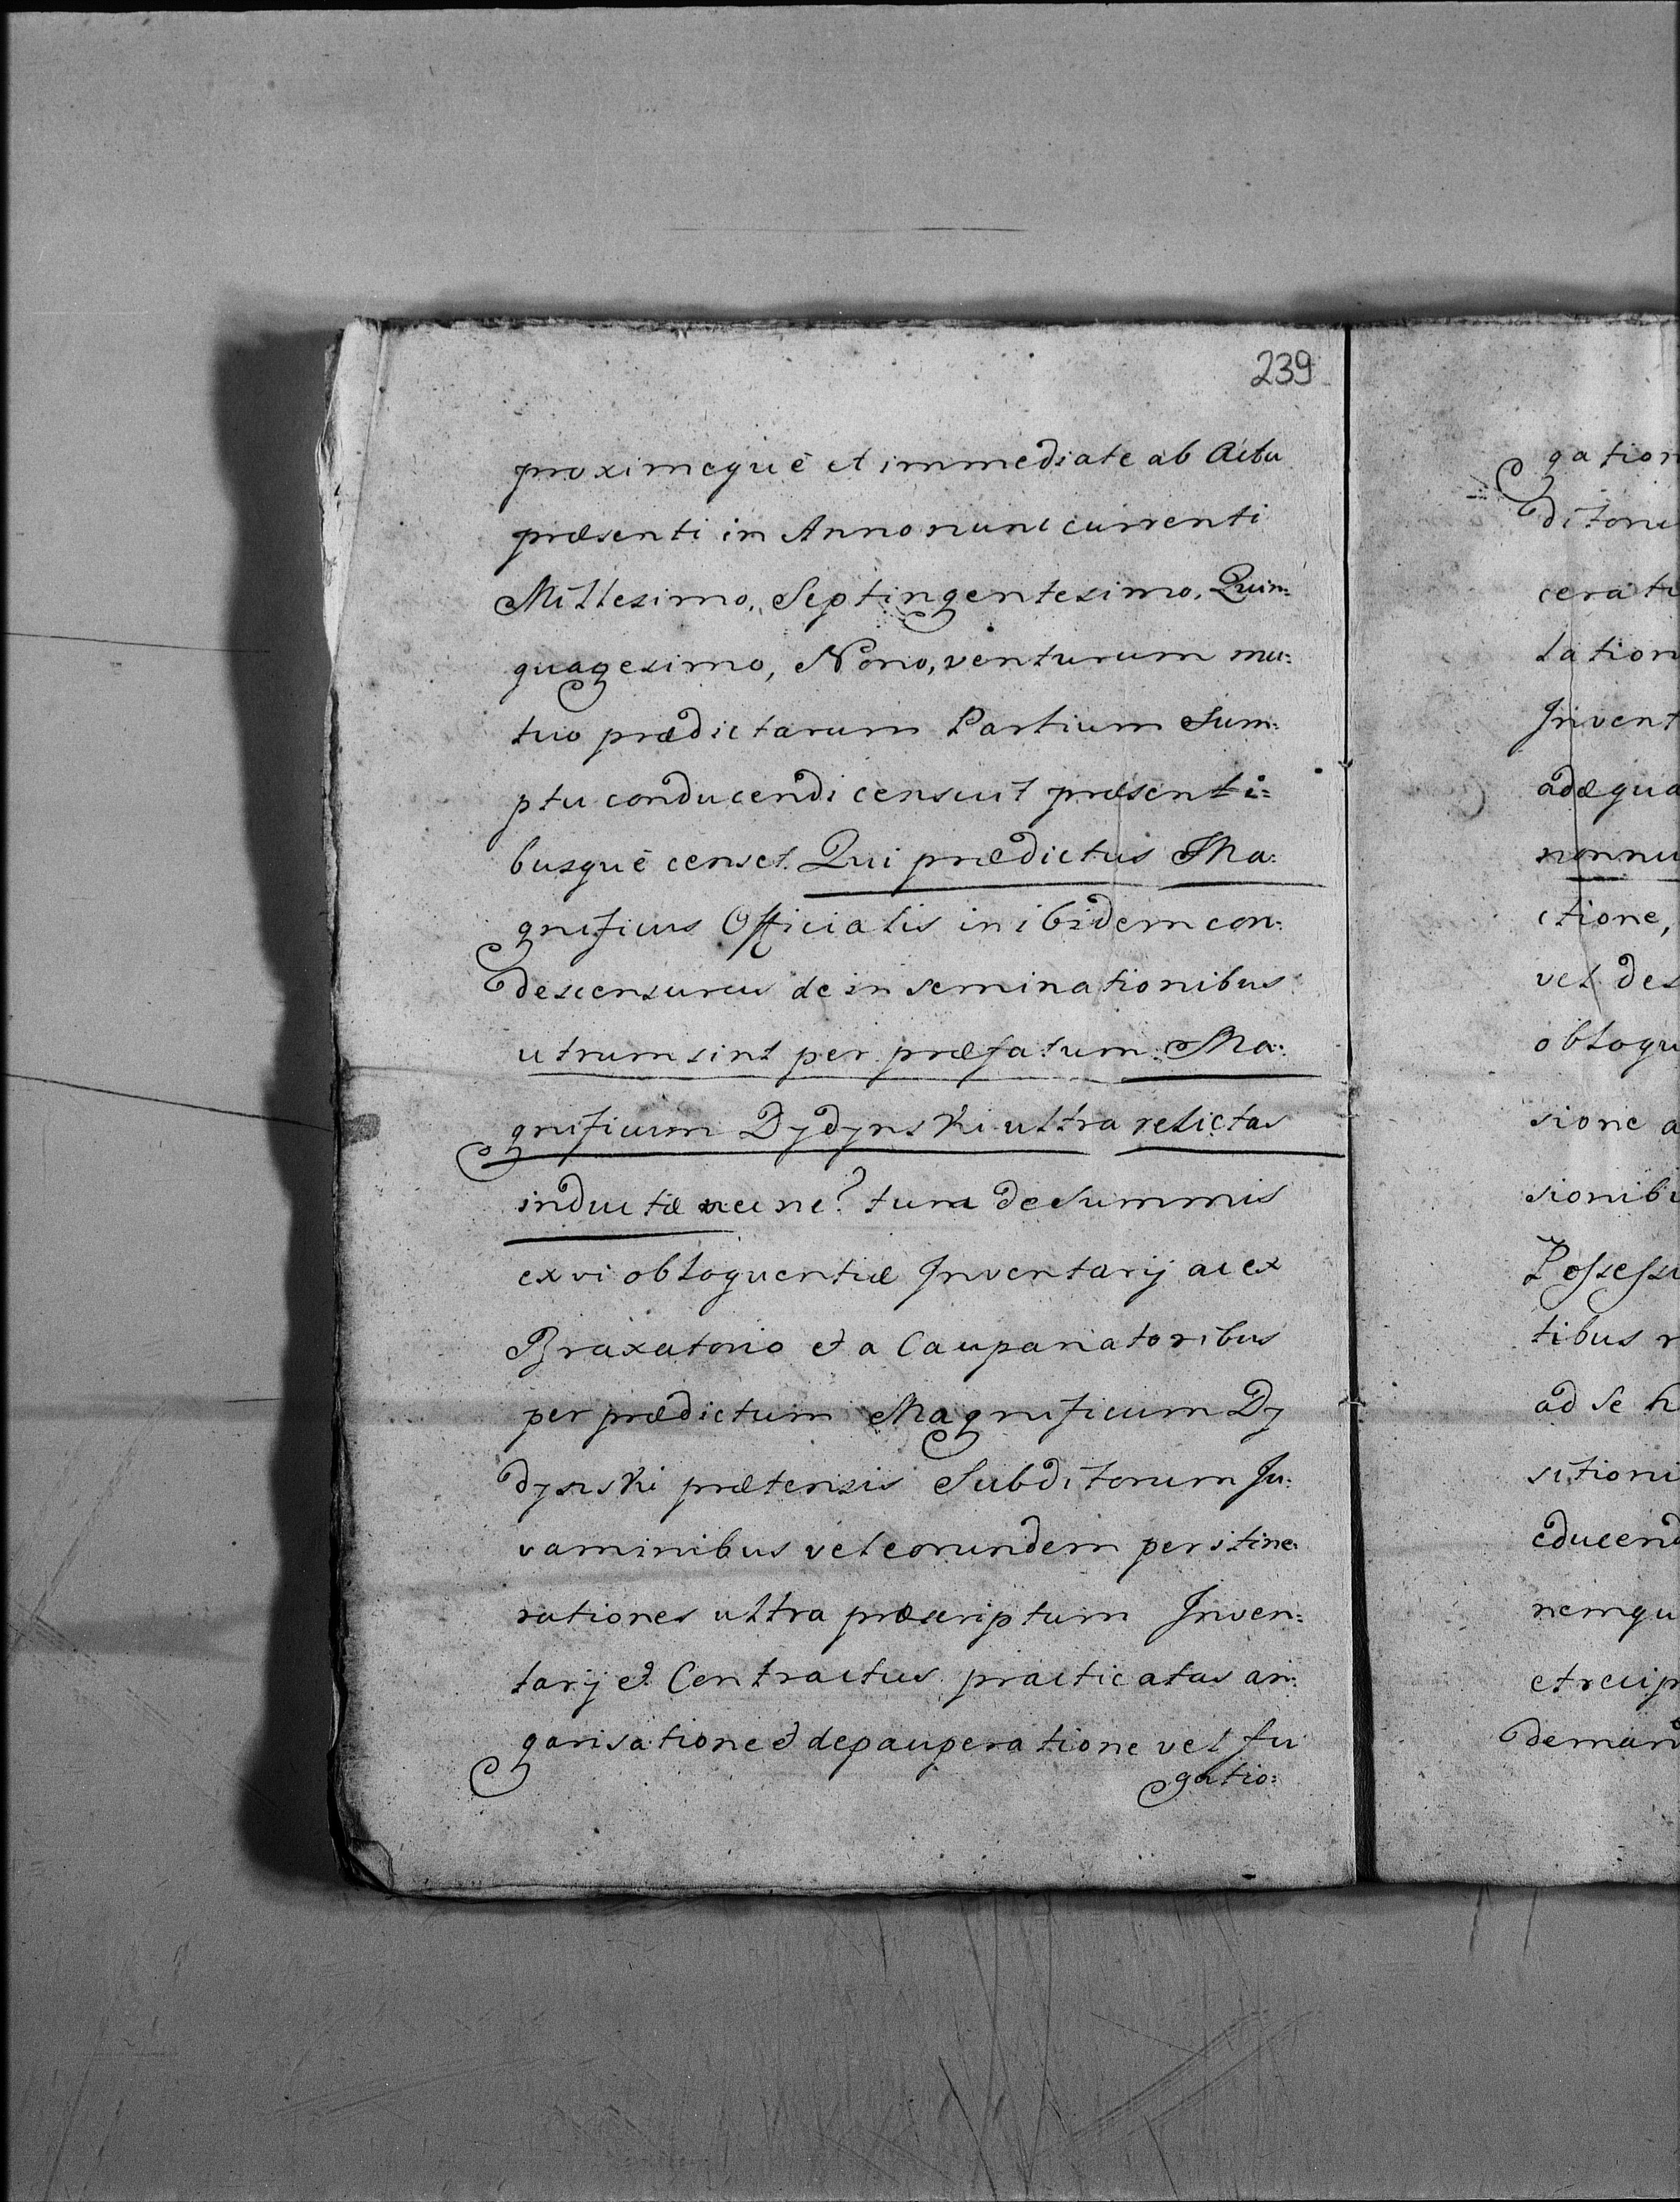 239
proximeque et immediate ab Actu
præsenti in Anno nunc currenti
Millesimo, Septingentesimo, Quin:
quagesimo, Nono, venturum mu:
tuo prædictarum Partium Sum:
ptu conducendi censuit præsenti:
busque censet. Qui prædictus Ma:
gnificus Officialis in ibidem con:
descensurus de in seminationibus
utrum sint per præfatum Ma:
gnificum Dydynski ultra relictas
inductæ nec ne? tum de summis
ex vi obloquentiæ Inventarij ac ex
Braxatorio et a Caupanatoribus
per prædictum Magnificum Dy
dynski prætensis Subditorum Ju:
vaminibus vel eorundem per itine:
rationes ultra præscriptum Inven:
tarij et Contractus practicatas an:
garisatione et depauperatione vel fu
gatio:
gation
ditoru
cerati
lation
Invent
adæqua
nonnu
ctione,
vel des
obloqu
sione a
sionibu
Possessi
tibus r
ad se h
sitioni
educend
nemqu
et recip
deman